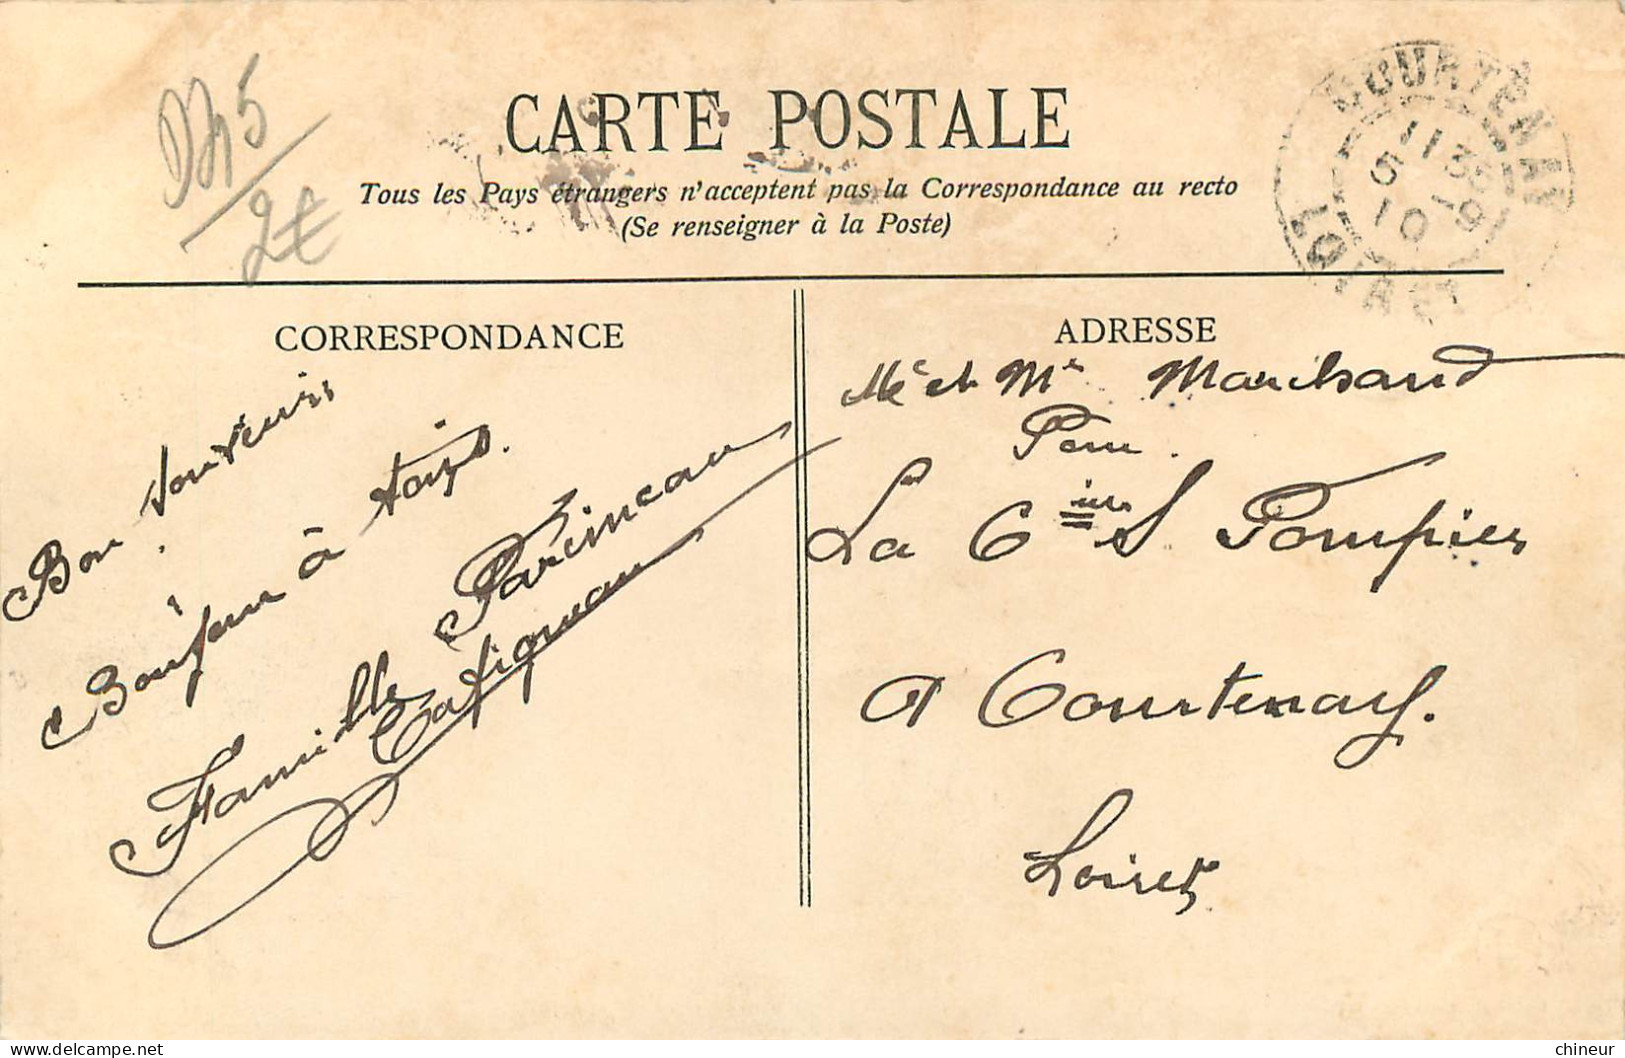 D45
2€
CARTE POSTALE
Tous les Pays étrangers n'acceptent pas la Correspondance au recto
(Se renseigner à la Poste)
COURTENAY
11 35
5 -9
10
LOIRET
CORRESPONDANCE
Bon Souvenir
Bonjour à tous.
Famille Parineau
Catigneau
ADRESSE
Mr et Me Marchand
La Cie S Pompiers
A Courtenay.
Loiret
Delcampe.net
chineur